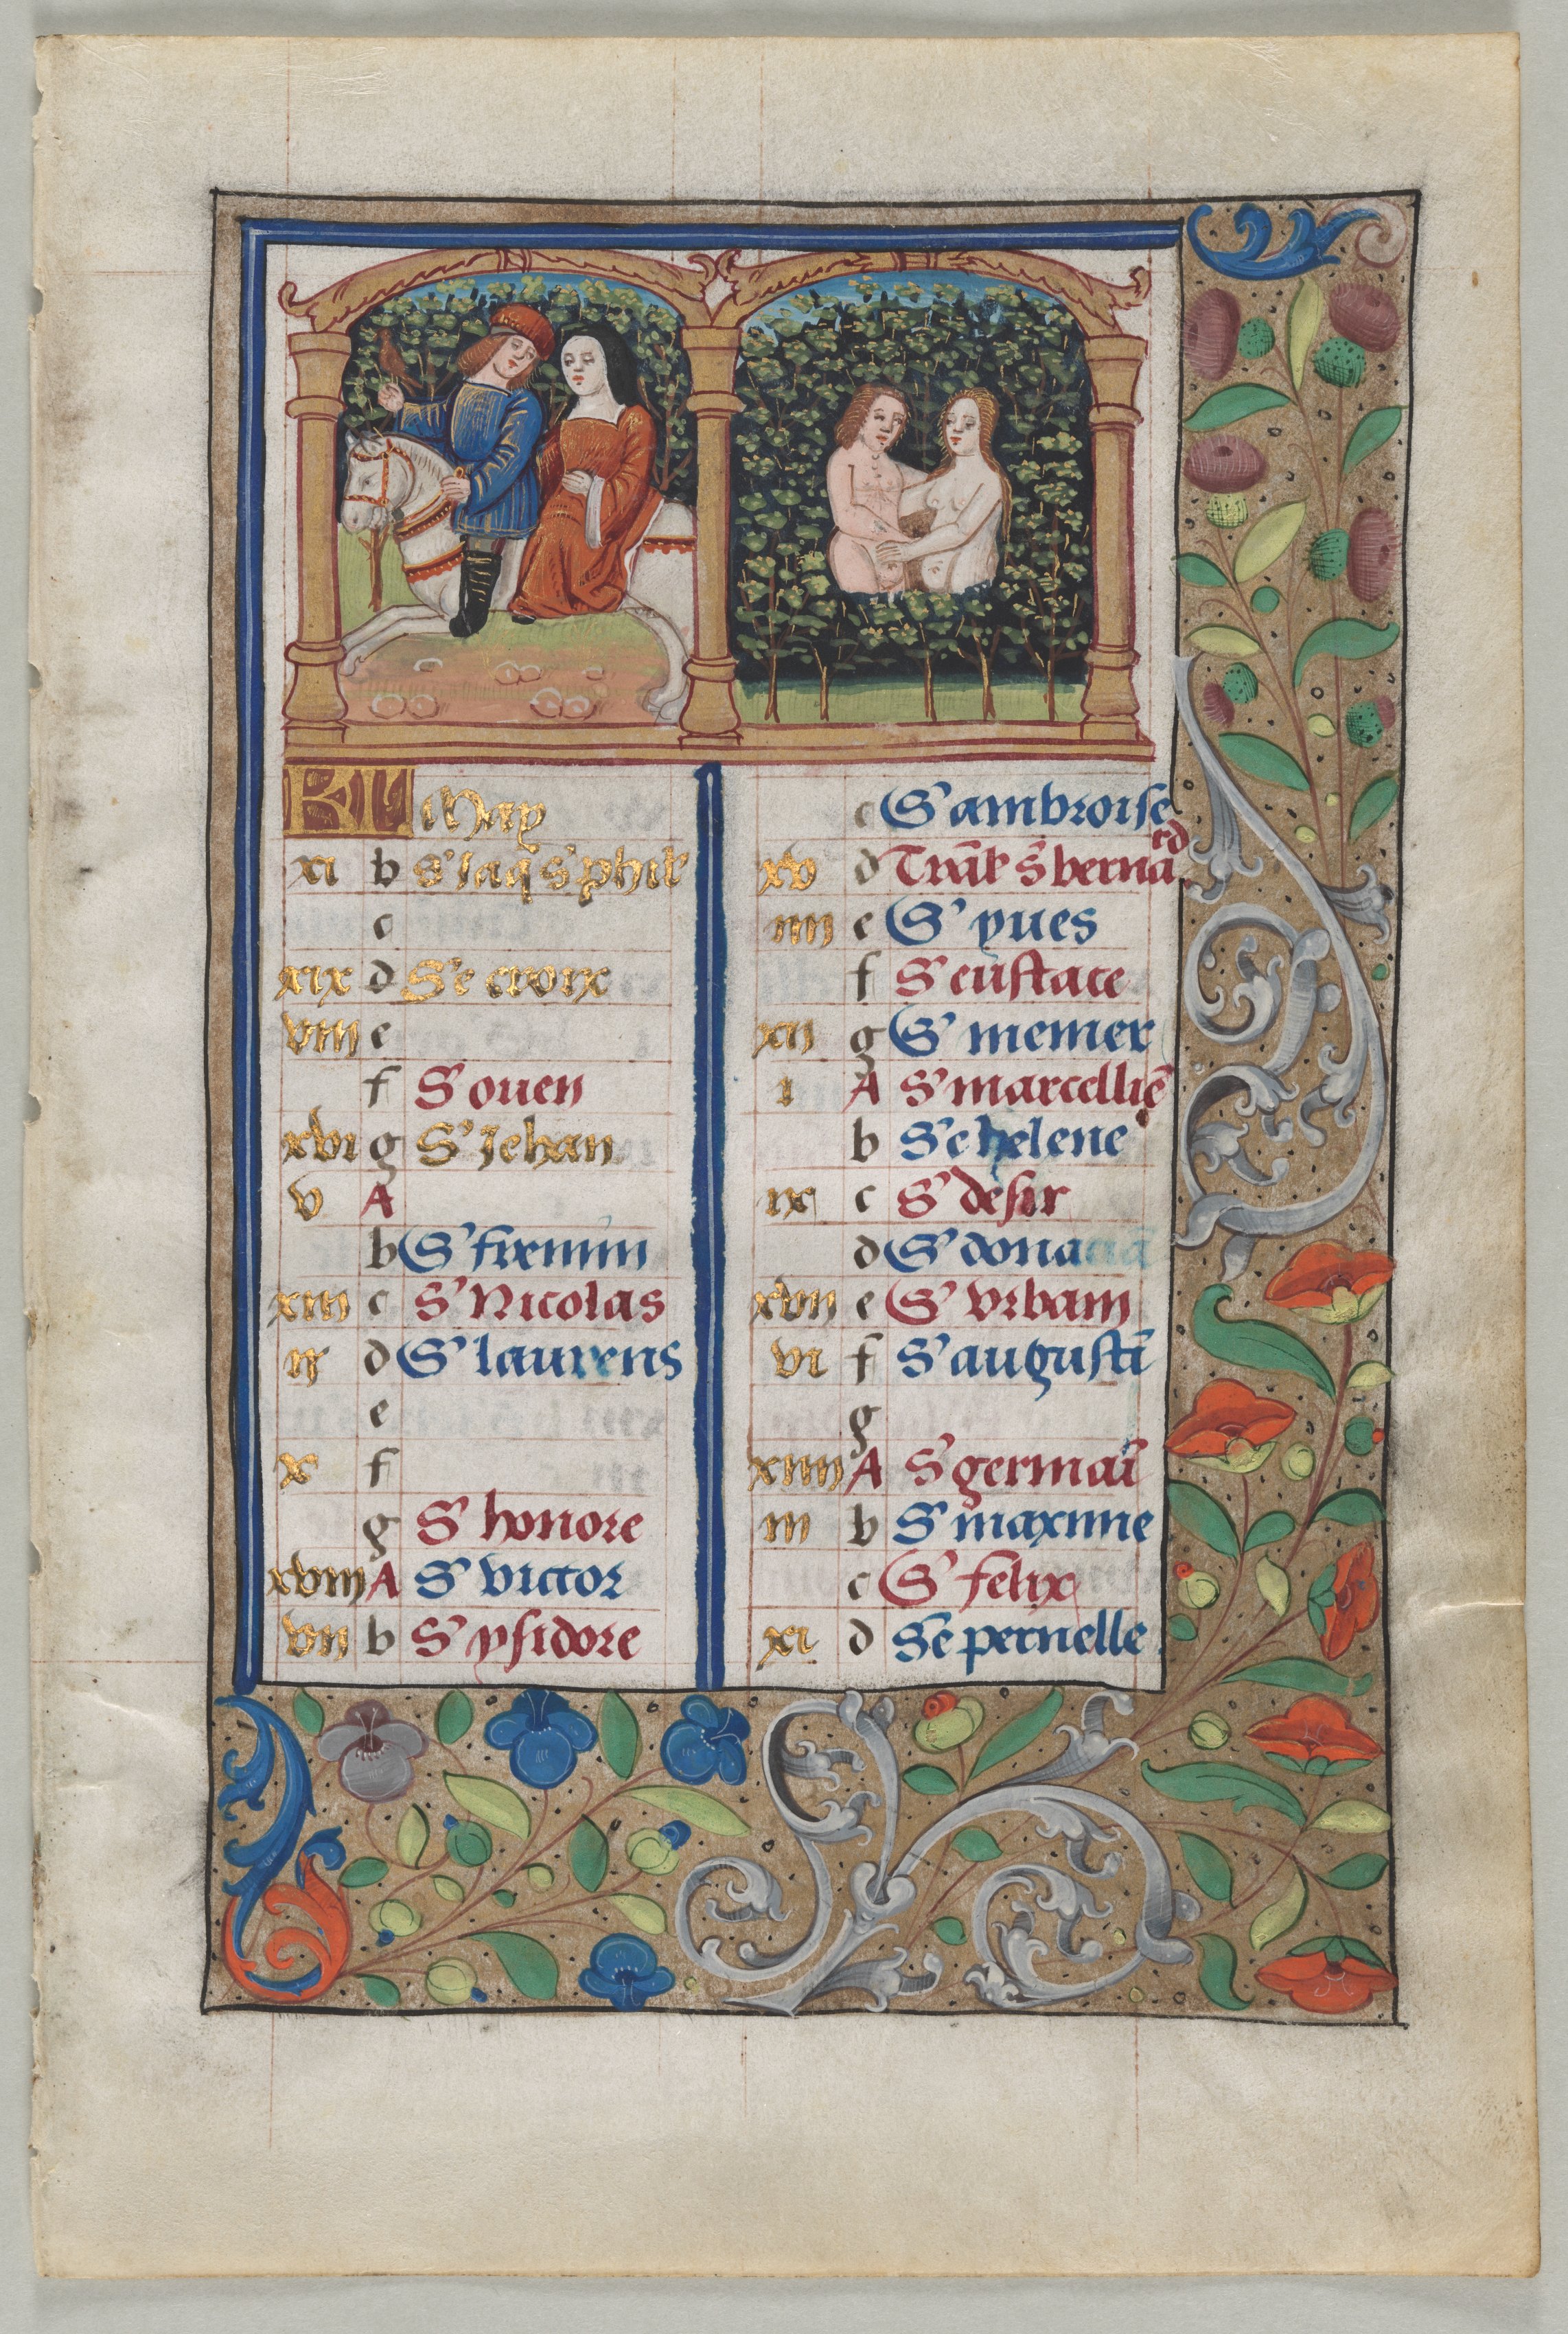 KL May
xi b S' Jaq̄ S' phil'
c
xix d Se croix
viii e
f S' ouen
xvi g S' Jehan
v A
b S' firmin
xiii c S' Nicolas
ii d S' laurens
e
x f
g S' honore
xviii A S' victor
vii b S' ysidore
c S' ambroise
xv d Trāsl' s̄ bernard
iiii e S' yues
f S' eustace
xii g S' memer
i A S' marcelliē
b S'e helene
ix c S' desir
d S' donaciā
xvii e S' vrbain
vi f S' augustī
g
xiiii A S' germaī
iii b S' maxime
c S' felix
xi d Sē pernelle